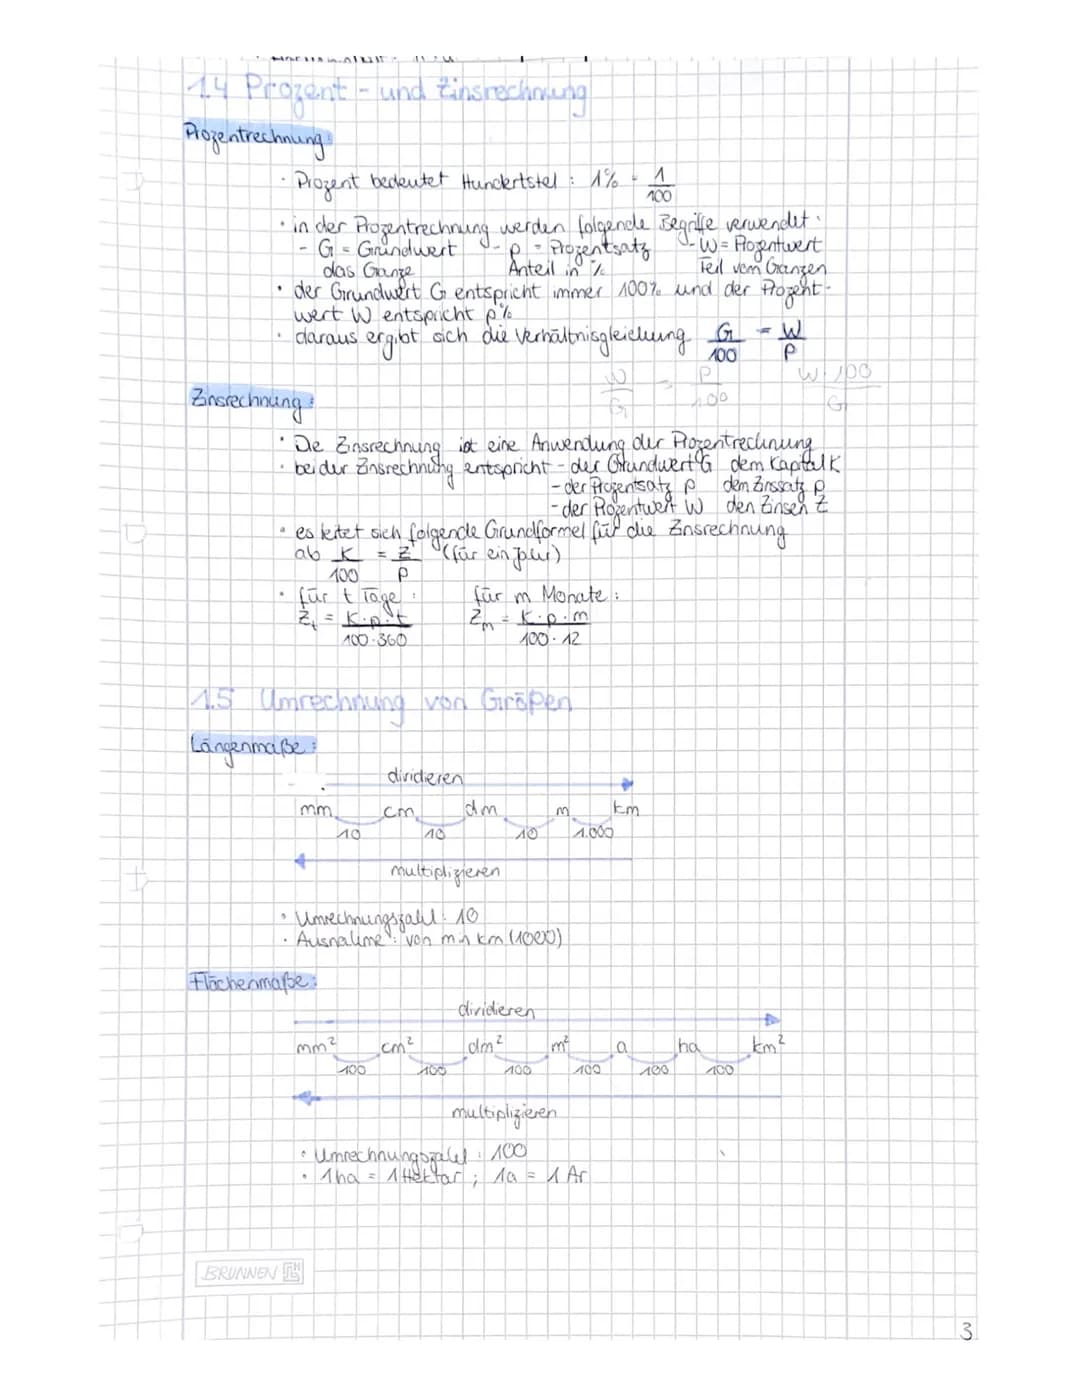 1.4 Prozent - und Zinsrechnung
Prozentrechnung:
· Prozent bedeutet Hundertstel : 1% = 1/100
· in der Prozentrechnung werden folgende Begriffe verwendet:
- G = Grundwert - p = Prozentsatz - W = Prozentwert
das Ganze Anteil in % Teil vom Ganzen
· der Grundwert G entspricht immer 100% und der Prozent-
wert W entspricht p%
· daraus ergibt sich die Verhältnisgleichung G/100 = W/p
W/G = P/100 W·100/G
Zinsrechnung:
· Die Zinsrechnung ist eine Anwendung der Prozentrechnung
· bei der Zinsrechnung entspricht - der Grundwert G dem Kapital K
- der Prozentsatz p dem Zinssatz p
- der Prozentwert W den Zinsen Z
· es leitet sich folgende Grundformel für die Zinsrechnung
ab K/100 = Z/p (für ein Jahr)
· für t Tage : für m Monate :
Zt = K·p·t/100·360 Zm = K·p·m/100·12
1.5 Umrechnung von Größen
Längenmaße:
dividieren
mm cm dm m km
10 10 10 1.000
multiplizieren
· Umrechnungszahl: 10
· Ausnahme: von m in km (1000)
Flächenmaße:
dividieren
mm² cm² dm² m² a ha km²
100 100 100 100 100 100
multiplizieren
· Umrechnungszahl : 100
· 1ha = 1 Hektar ; 1a = 1 Ar
BRUNNEN
3